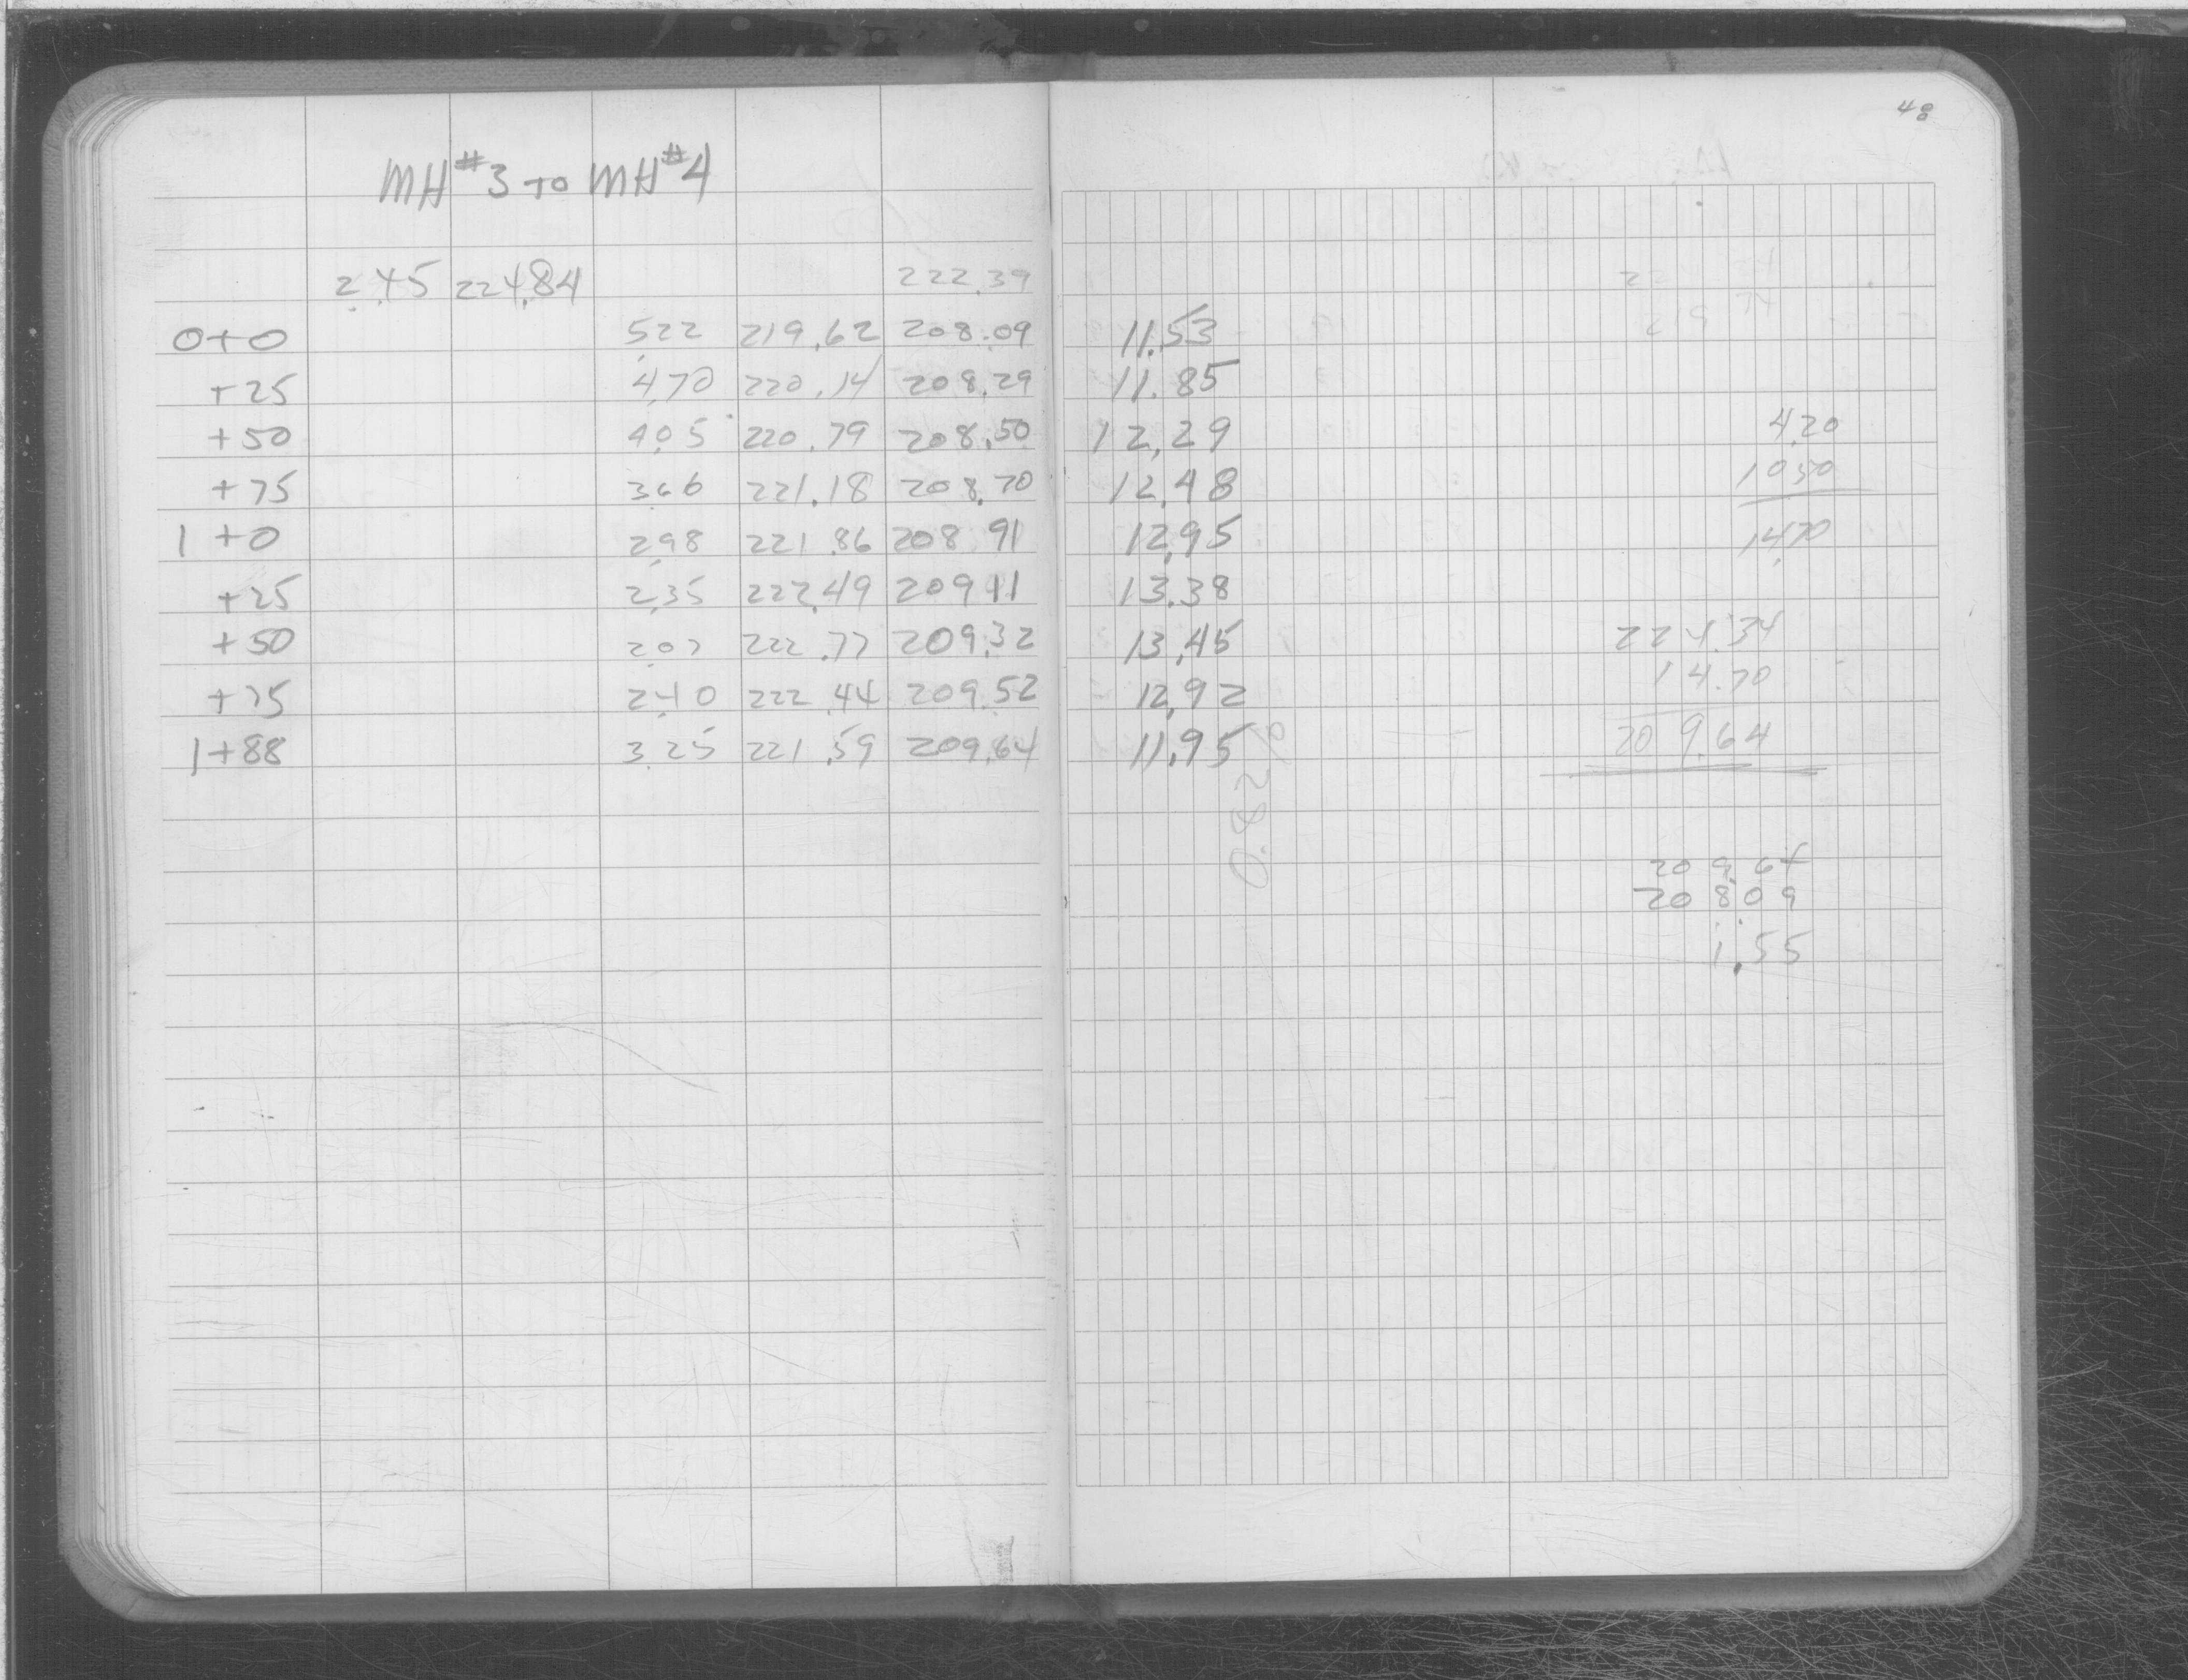 48
MH #3 to MH #4
2.45 224.84 222.39
0+0 5.22 219.62 208.09 11.53
+25 4.70 220.14 208.29 11.85
+50 4.05 220.79 208.50 12.29
+75 3.66 221.18 208.70 12.48
1+0 2.98 221.86 208.91 12.95
+25 2.35 222.49 209.11 13.38
+50 2.07 222.77 209.32 13.45
+75 2.40 222.44 209.52 12.92
1+88 3.25 221.59 209.64 11.95
4.20
10.50
14.70
224.34
14.70
209.64
209.64
208.09
1.55